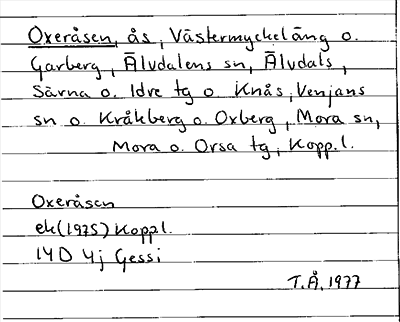 Oxeråsen, ås, Västermyckeläng o.
Garberg, Älvdalens sn, Älvdals,
Särna o. Idre tg o. Knås, Venjans
sn o. Kråkberg o. Oxberg, Mora sn,
Mora o. Orsa tg, Kopp.l.
Oxeråsen
ek(1975) Koppl.
14D 4j Gessi
T.Å. 1977